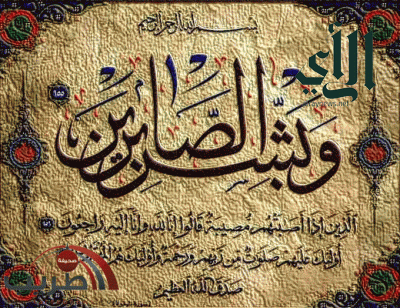 بسم الله الرحمن الرحيم
الرأي
وبشر الصابرين
١٥٥
الذين إذا أصابتهم مصيبة قالوا إنا لله وإنا إليه راجعون
أولئك عليهم صلوات من ربهم ورحمة وأولئك هم
صدق الله العظيم
صحيفة
طريف